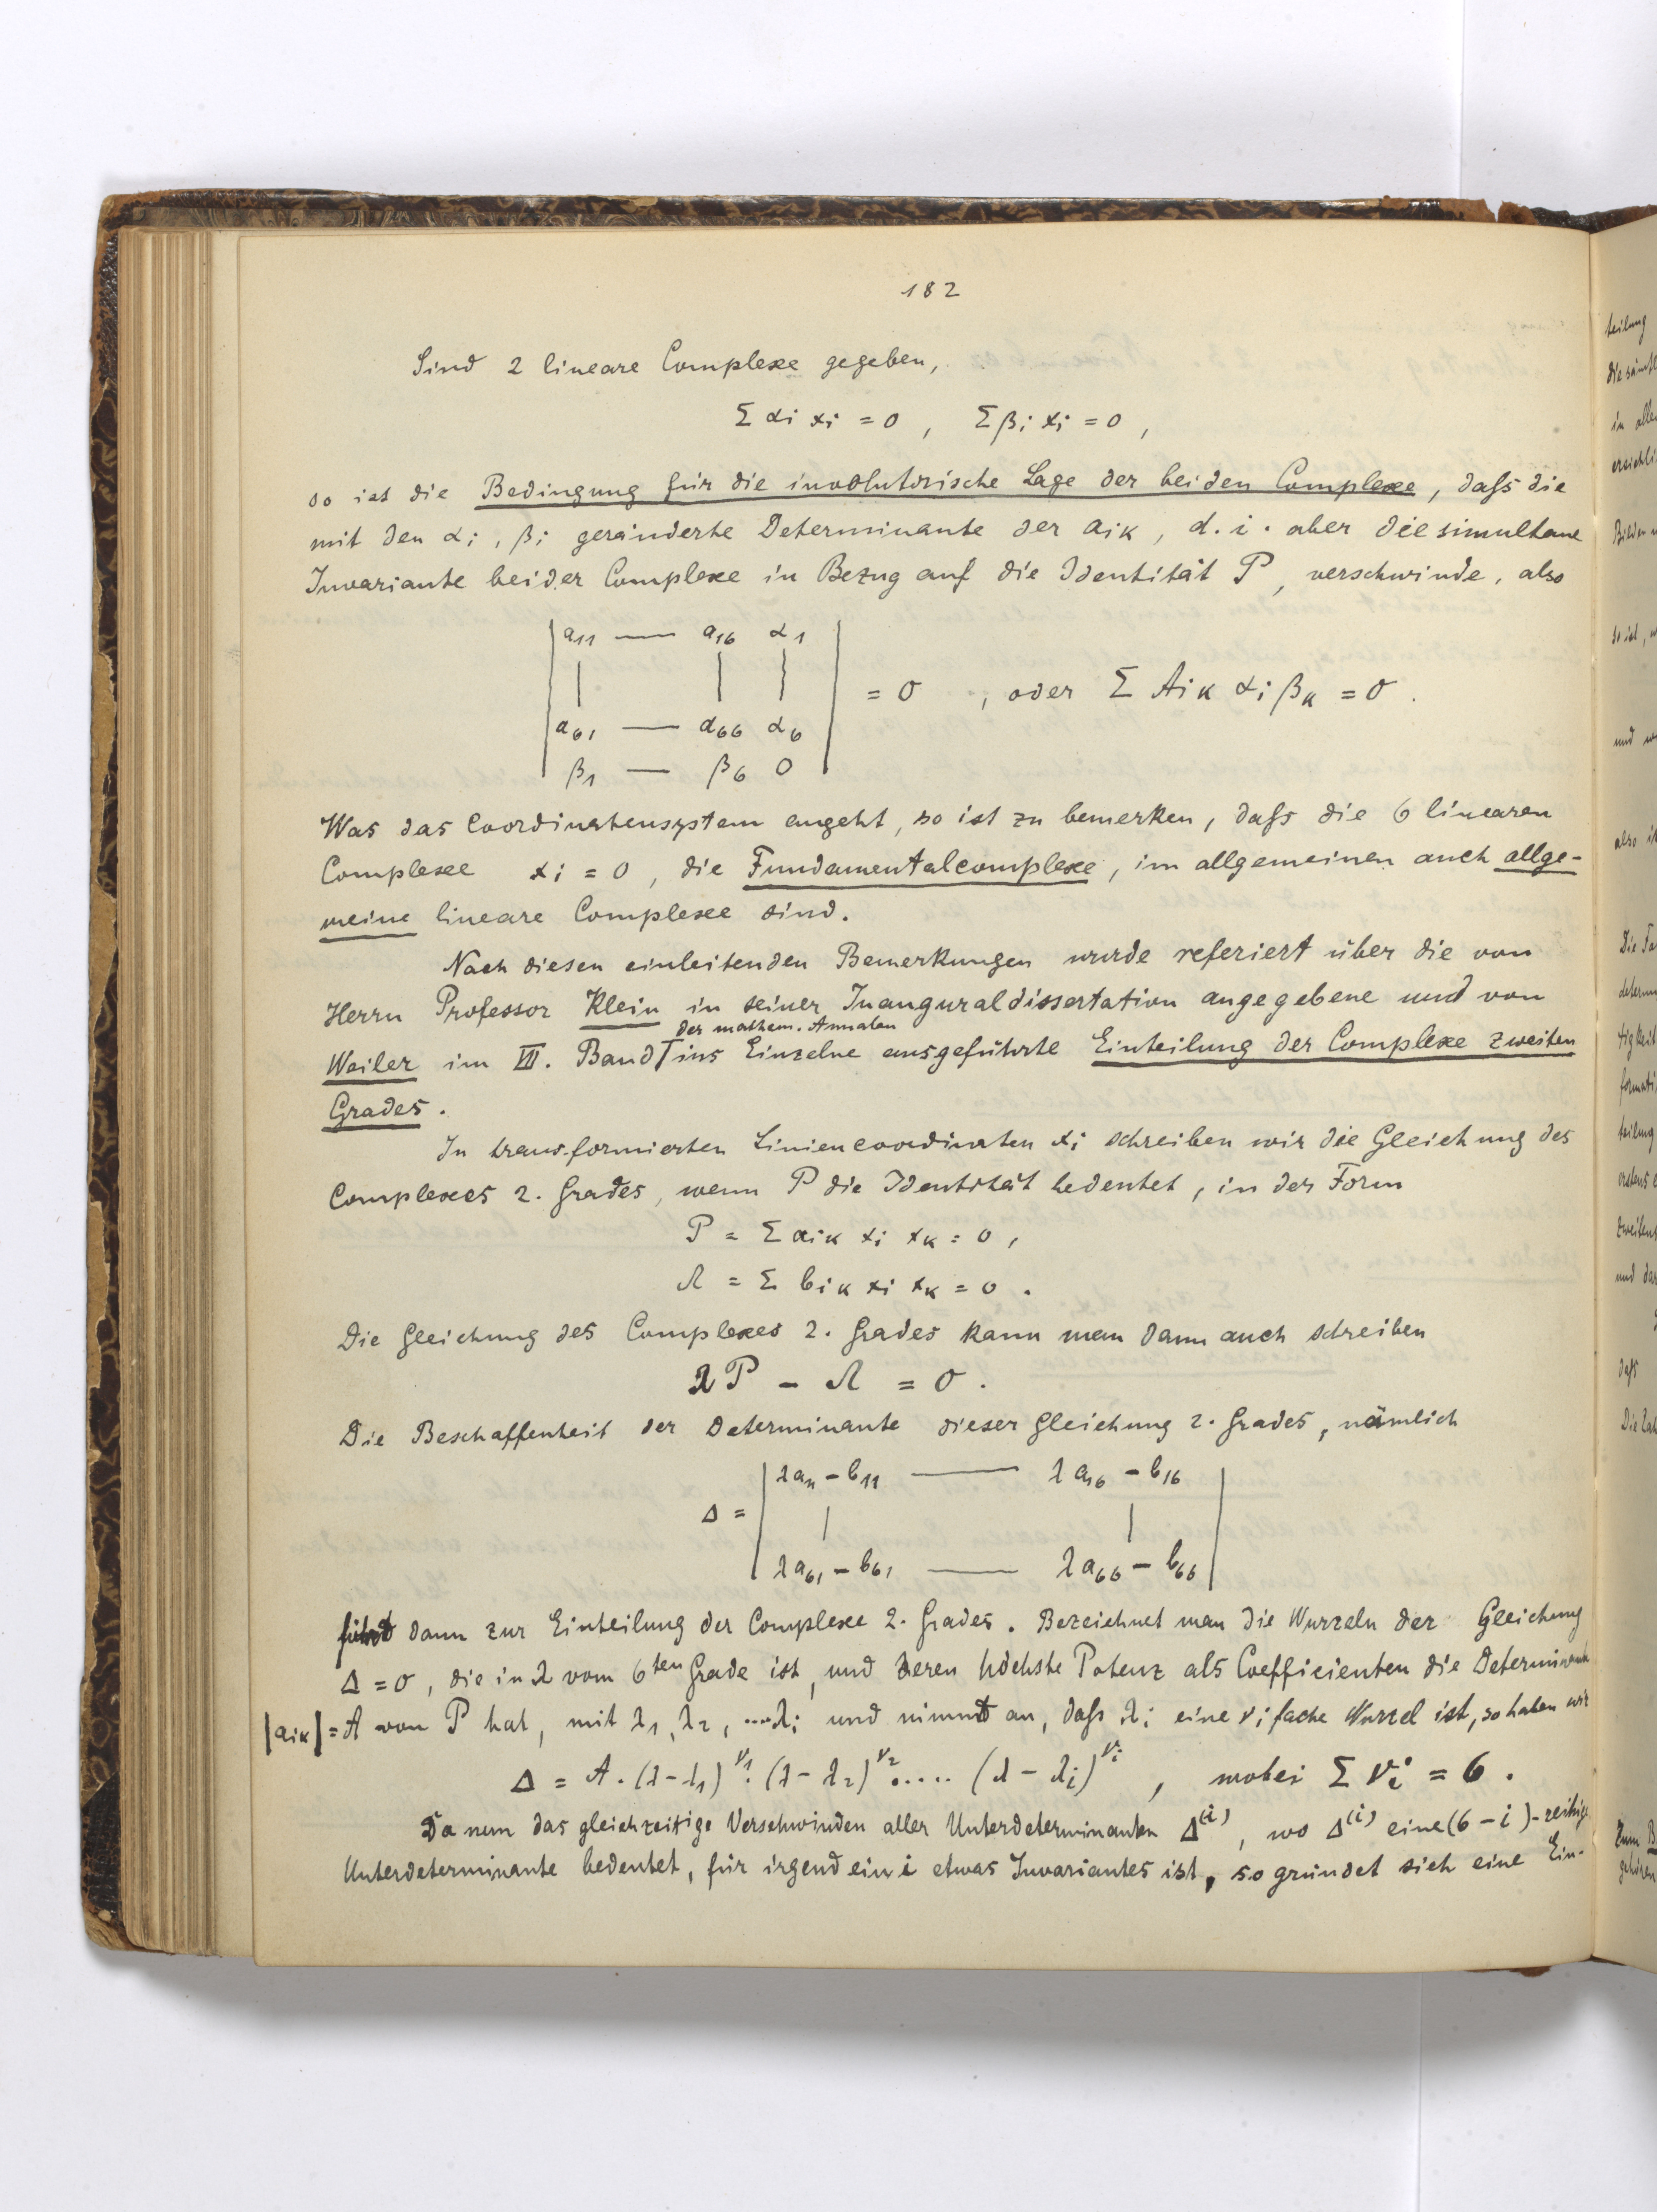 182
Sind 2 lineare Complexe gegeben,
Σ αi xi = 0 , Σ βi xi = 0 ,
so ist die Bedingung für die involutorische Lage der beiden Complexe, daſs die
mit den αi, βi geränderte Determinante der aik, d. i. aber die simultane
Invariante beider Complexe in Bezug auf die Identität P, verschwinde, also
| a11 — a16 α1 |
| | | | |
= 0 , oder Σ Aik αi βk = 0 .
| a61 — a66 α6 |
| β1 — β6 0 |
Was das Coordinatensystem angeht, so ist zu bemerken, daſs die 6 linearen
Complexe xi = 0, die Fundamentalcomplexe, im allgemeinen auch allge-
meine lineare Complexe sind.
Nach diesen einleitenden Bemerkungen wurde referiert über die von
Herrn Professor Klein in seiner Inauguraldissertation angegebene und von
der mathem. Annalen
Weiler im VII. Band ins Einzelne ausgeführte Einteilung der Complexe zweiten
Grades.
In transformierten Liniencoordinaten xi schreiben wir die Gleichung des
Complexes 2. Grades, wenn P die Identität bedeutet, in der Form
P = Σ aik xi xk = 0 ,
Λ = Σ bik xi xk = 0 .
Die Gleichung des Complexes 2. Grades kann man dann auch schreiben
λP – Λ = 0 .
Die Beschaffenheit der Determinante dieser Gleichung 2. Grades, nämlich
| λa11 – b11 — λa16 – b16 |
Δ = | | | |
| λa61 – b61 — λa66 – b66 |
führt dann zur Einteilung der Complexe 2. Grades. Bezeichnet man die Wurzeln der Gleichung
Δ = 0, die in λ vom 6ten Grade ist, und deren höchste Potenz als Coefficienten die Determinante
|aik| = A von P hat, mit λ1, λ2, ....λi und nimmt an, daſs λi eine νi fache Wurzel ist, so haben wir
Δ = A . (λ – λ1)^ν1 . (λ – λ2)^ν2 ..... (λ – λi)^νi , wobei Σ νi = 6 .
Da nun das gleichzeitige Verschwinden aller Unterdeterminanten Δ(i), wo Δ(i) eine (6 – i)-reihige
Unterdeterminante bedeutet, für irgend ein i etwas Invariantes ist, so gründet sich eine Ein-